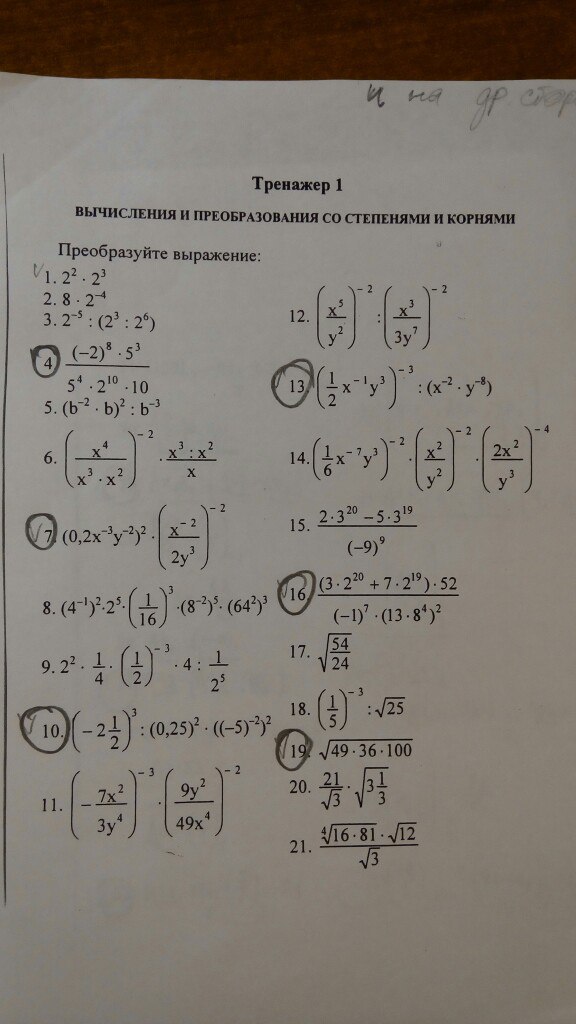 и на др. стор
Тренажер 1
ВЫЧИСЛЕНИЯ И ПРЕОБРАЗОВАНИЯ СО СТЕПЕНЯМИ И КОРНЯМИ
Преобразуйте выражение:
1. 2² · 2³
2. 8 · 2⁻⁴
3. 2⁻⁵ : (2³ : 2⁶)
4. \frac{(−2)⁸ · 5³}{5⁴ · 2¹⁰ · 10}
5. (b⁻² · b)² : b⁻³
6. (\frac{x⁴}{x³ · x²})⁻² · \frac{x³ : x²}{x}
7. (0,2x⁻³y⁻²)² · (\frac{x⁻²}{2y³})⁻²
8. (4⁻¹)² · 2⁵ · (\frac{1}{16})³ · (8⁻²)⁵ · (64²)³
9. 2² · \frac{1}{4} · (\frac{1}{2})⁻³ · 4 : \frac{1}{2⁵}
10. (−2\frac{1}{2})³ : (0,25)² · ((−5)⁻²)²
11. (−\frac{7x²}{3y⁴})⁻³ · (\frac{9y²}{49x⁴})⁻²
12. (\frac{x⁵}{y²})⁻² : (\frac{x³}{3y⁷})⁻²
13. (\frac{1}{2}x⁻¹y³)⁻³ : (x⁻² · y⁻⁸)
14. (\frac{1}{6}x⁻⁷y³)⁻² · (\frac{x²}{y²})⁻² · (\frac{2x²}{y³})⁻⁴
15. \frac{2 · 3²⁰ − 5 · 3¹⁹}{(−9)⁹}
16. \frac{(3 · 2²⁰ + 7 · 2¹⁹) · 52}{(−1)⁷ · (13 · 8⁴)²}
17. √\frac{54}{24}
18. (\frac{1}{5})⁻³ : √25
19. √49 · 36 · 100
20. \frac{21}{√3} · √3\frac{1}{3}
21. \frac{⁴√16 · 81 · √12}{√3}